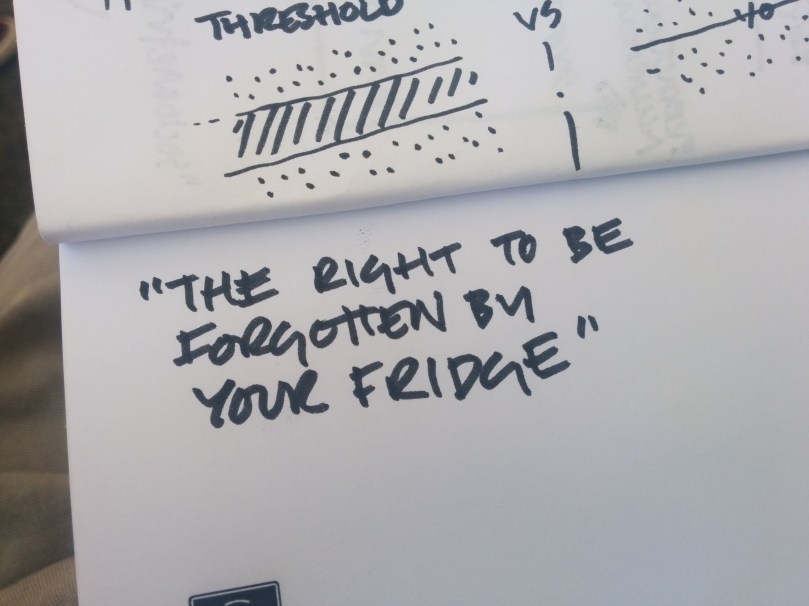 THRESHOLD
VS
"THE RIGHT TO BE
FORGOTTEN BY
YOUR FRIDGE"